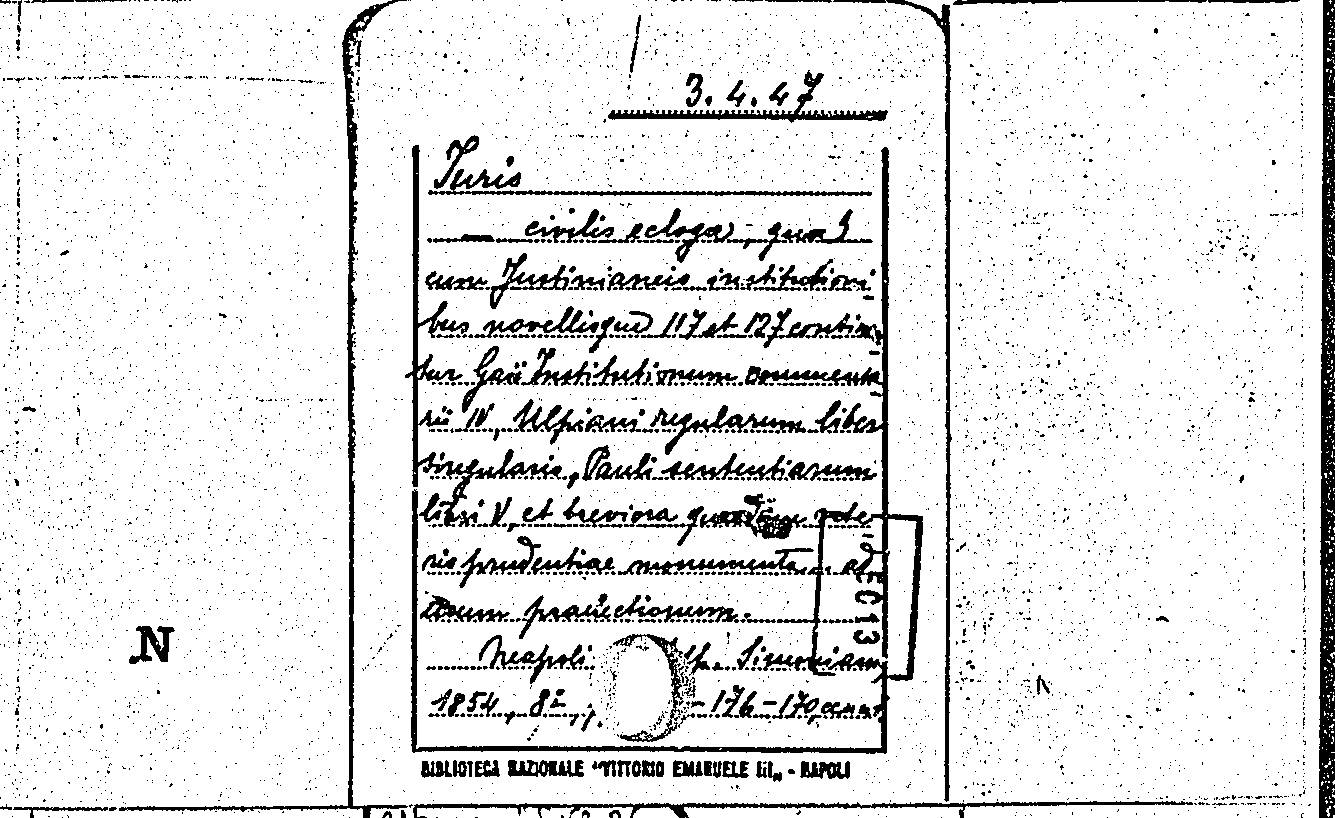 3.4.47
Juris
— civilis ecloga, qua
cum Justinianeis institutioni
bus novellisque 117 et 127 contin
tur Gaii Institutionum commenta
rii IV, Ulpiani regularum liber
singularis, Pauli sententiarum
libri V, et breviora quaedam vete
ris prudentiae monumenta... ad
usum praelectionum.
Neapoli. Simonian
1854, 8º, - 176 - 170
2013
N
BIBLIOTECA NAZIONALE "VITTORIO EMANUELE III„ - NAPOLI